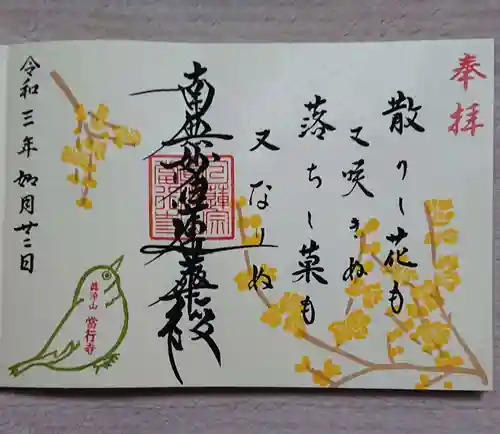 奉拝
散りし花も
又咲きぬ
落ちし菓も
又なりぬ
南無妙法蓮華経
令和三年如月廿二日
眞浄山
當行寺